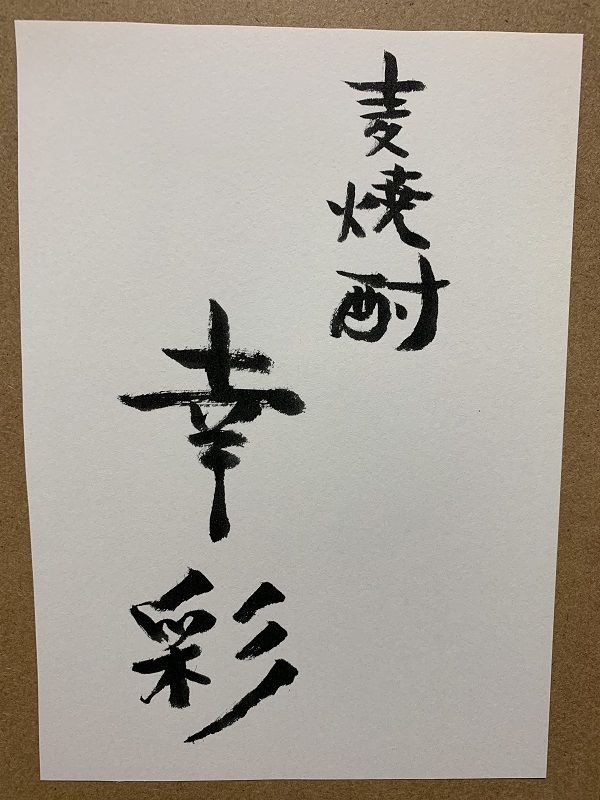 麦焼酎
幸彩